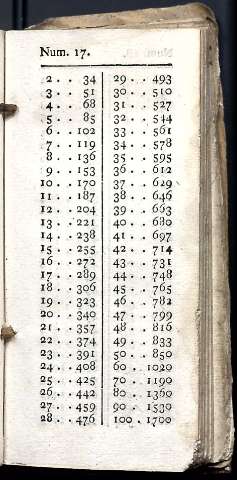 Num. 17.
2 . . 34
3 . . 51
4 . . 68
5 . . 85
6 . . 102
7 . . 119
8 . . 136
9 . . 153
10 . . 170
11 . . 187
12 . . 204
13 . . 221
14 . . 238
15 . . 255
16 . . 272
17 . . 289
18 . . 306
19 . . 323
20 . . 340
21 . . 357
22 . . 374
23 . . 391
24 . . 408
25 . . 425
26 . . 442
27 . . 459
28 . . 476
29 . . 493
30 . . 510
31 . . 527
32 . . 544
33 . . 561
34 . . 578
35 . . 595
36 . . 612
37 . . 629
38 . . 646
39 . . 663
40 . . 680
41 . . 697
42 . . 714
43 . . 731
44 . . 748
45 . . 765
46 . . 782
47 . . 799
48 . . 816
49 . . 833
50 . . 850
60 . . 1020
70 . . 1190
80 . . 1360
90 . . 1530
100 . 1700